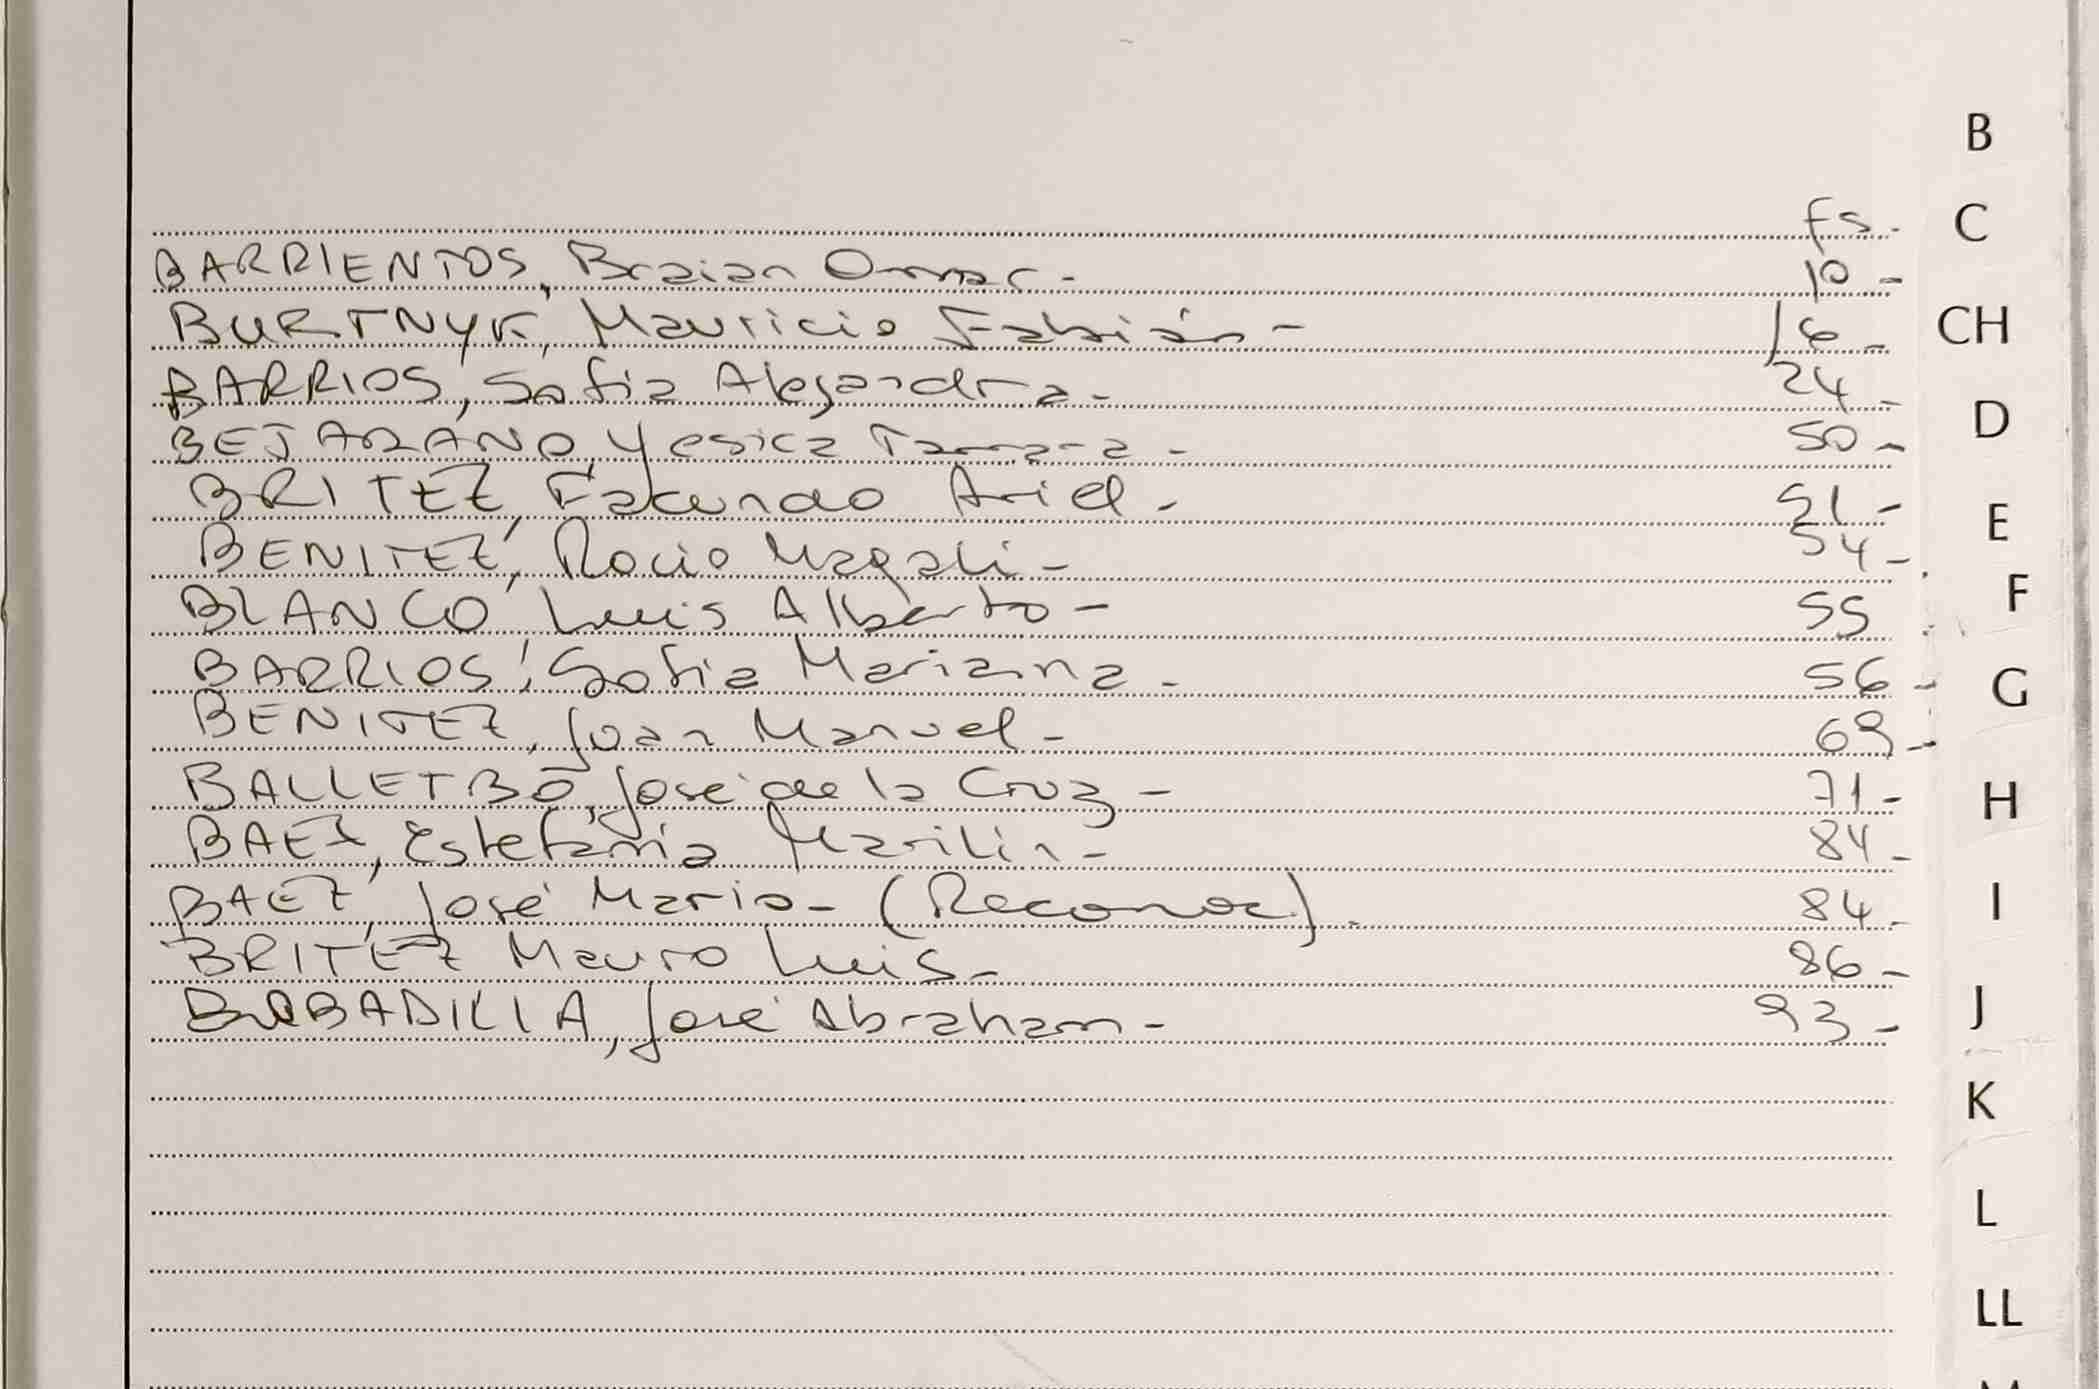 B
Fs.
C
BARRIENTOS, Braian Omar - 10 -
BURTNYK, Mauricio Fabián - 16 -
CH
BARRIOS, Sofia Alejandra - 24 -
D
BEJARANO, Yesica Tamara - 50 -
BRITEZ, Facundo Ariel - 51 -
E
BENITEZ, Rocio Magali - 54 -
F
BLANCO, Luis Alberto - 55
BARRIOS, Sofia Mariana - 56 -
G
BENITEZ, Joan Manuel - 69 -
BALLETBÓ, José de la Cruz - 71 -
H
BAEZ, Estefania Marilin - 84 -
BAEZ, José Mario - (Reconoc). 84 -
I
BRITEZ Mauro Luis - 86 -
BOBADILLA, José Abraham - 93 -
J
K
L
LL